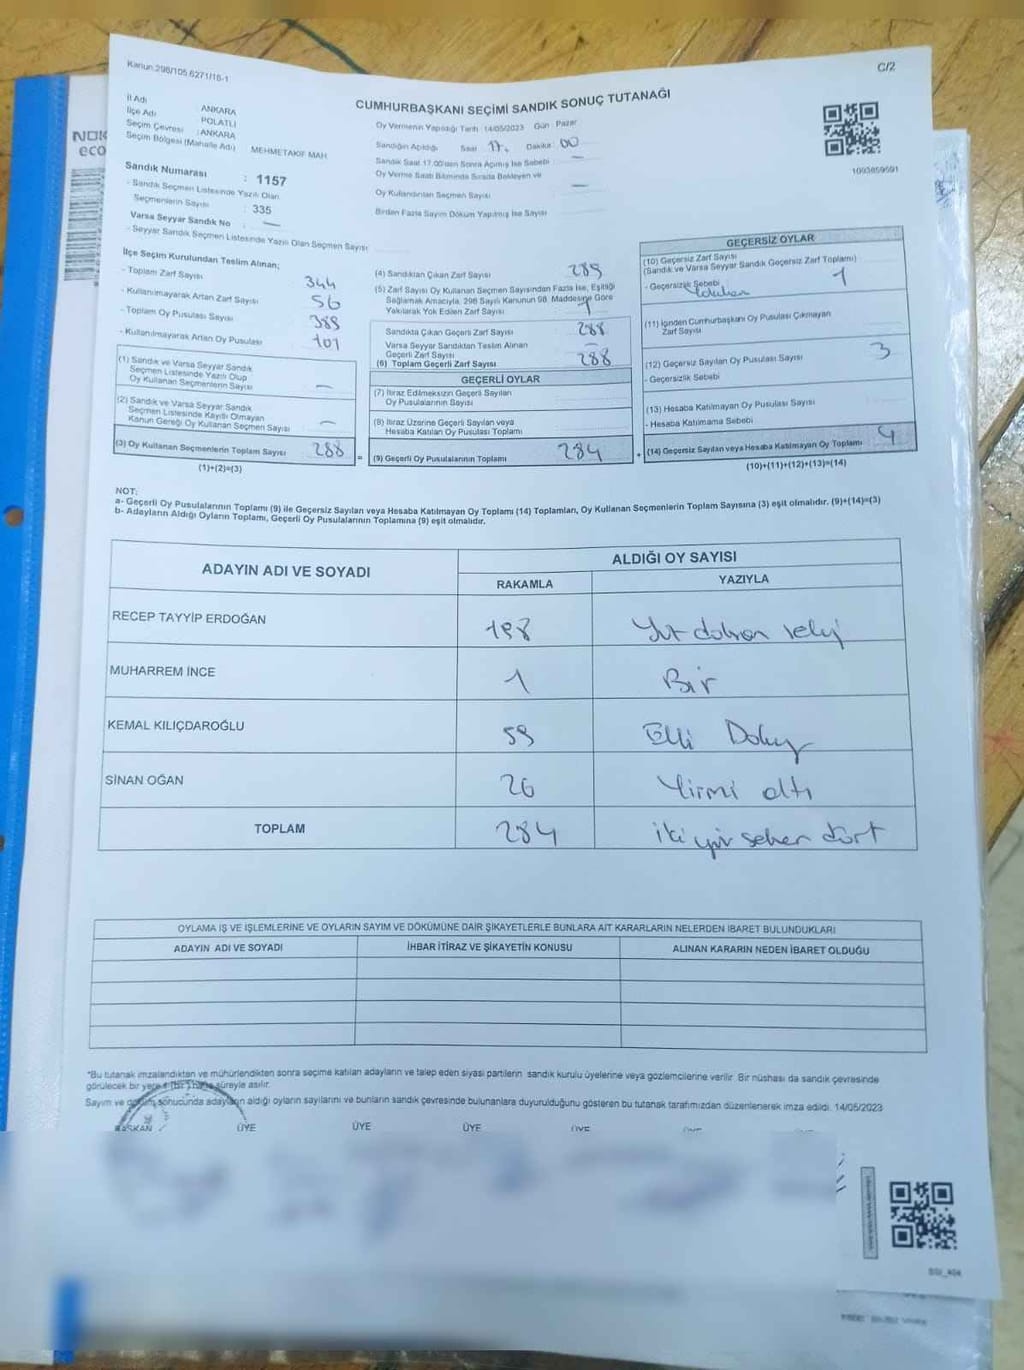 Kanun:298/105.6271/16-1
C/2
CUMHURBAŞKANI SEÇİMİ SANDIK SONUÇ TUTANAĞI
İl Adı ANKARA
İlçe Adı POLATLI
Seçim Çevresi : ANKARA
Seçim Bölgesi (Mahalle Adı) MEHMETAKİF MAH
Sandık Numarası : 1157
- Sandık Seçmen Listesinde Yazılı Olan Seçmenlerin Sayısı : 335
Varsa Seyyar Sandık No : —
- Seyyar Sandık Seçmen Listesinde Yazılı Olan Seçmen Sayısı
Oy Vermenin Yapıldığı Tarih :14/05/2023 Gün : Pazar
Sandığın Açıldığı Saat 17. Dakika: 00
Sandık Saat 17.00'den Sonra Açılmış İse Sebebi : —
Oy Verme Saati Bitiminde Sırada Bekleyen ve
Oy Kullandırılan Seçmen Sayısı —
Birden Fazla Sayım Döküm Yapılmış İse Sayısı
1003859591
NOK
eco
İlçe Seçim Kurulundan Teslim Alınan;
- Toplam Zarf Sayısı 344
- Kullanılmayarak Artan Zarf Sayısı 56
- Toplam Oy Pusulası Sayısı 389
- Kullanılmayarak Artan Oy Pusulası 101
(1) Sandık ve Varsa Seyyar Sandık
Seçmen Listesinde Yazılı Olup
Oy Kullanan Seçmenlerin Sayısı —
(2) Sandık ve Varsa Seyyar Sandık
Seçmen Listesinde Kayıtlı Olmayan
Kanun Gereği Oy Kullanan Seçmen Sayısı —
(3) Oy Kullanan Seçmenlerin Toplam Sayısı 288
(1)+(2)=(3)
(4) Sandıktan Çıkan Zarf Sayısı 289
(5) Zarf Sayısı Oy Kullanan Seçmen Sayısından Fazla İse, Eşitliği
Sağlamak Amacıyla, 298 Sayılı Kanunun 98. Maddesine Göre
Yakılarak Yok Edilen Zarf Sayısı 1
Sandıkta Çıkan Geçerli Zarf Sayısı 288
Varsa Seyyar Sandıktan Teslim Alınan
Geçerli Zarf Sayısı —
(6) Toplam Geçerli Zarf Sayısı 288
GEÇERLİ OYLAR
(7) İtiraz Edilmeksizin Geçerli Sayılan
Oy Pusulalarının Sayısı
(8) İtiraz Üzerine Geçerli Sayılan veya
Hesaba Katılan Oy Pusulası Toplamı
= (9) Geçerli Oy Pusulalarının Toplamı 284 +
GEÇERSİZ OYLAR
(10) Geçersiz Zarf Sayısı
(Sandık ve Varsa Seyyar Sandık Geçersiz Zarf Toplamı) 1
- Geçersizlik Sebebi
(11) İçinden Cumhurbaşkanı Oy Pusulası Çıkmayan
Zarf Sayısı
(12) Geçersiz Sayılan Oy Pusulası Sayısı 3
- Geçersizlik Sebebi
(13) Hesaba Katılmayan Oy Pusulası Sayısı
- Hesaba Katılmama Sebebi
(14) Geçersiz Sayılan veya Hesaba Katılmayan Oy Toplamı 4
(10)+(11)+(12)+(13)=(14)
NOT:
a- Geçerli Oy Pusulalarının Toplamı (9) ile Geçersiz Sayılan veya Hesaba Katılmayan Oy Toplamı (14) Toplamları, Oy Kullanan Seçmenlerin Toplam Sayısına (3) eşit olmalıdır. (9)+(14)=(3)
b- Adayların Aldığı Oyların Toplamı, Geçerli Oy Pusulalarının Toplamına (9) eşit olmalıdır.
ADAYIN ADI VE SOYADI
ALDIĞI OY SAYISI
RAKAMLA YAZIYLA
RECEP TAYYİP ERDOĞAN 198 Yüz doksan sekiz
MUHARREM İNCE 1 Bir
KEMAL KILIÇDAROĞLU 59 Elli Dokuz
SİNAN OĞAN 26 Yirmi altı
TOPLAM 284 iki yüz seksen dört
OYLAMA İŞ VE İŞLEMLERİNE VE OYLARIN SAYIM VE DÖKÜMÜNE DAİR ŞİKAYETLERLE BUNLARA AİT KARARLARIN NELERDEN İBARET BULUNDUKLARI
ADAYIN ADI VE SOYADI İHBAR İTİRAZ VE ŞİKAYETİN KONUSU ALINAN KARARIN NEDEN İBARET OLDUĞU
*Bu tutanak imzalandıktan ve mühürlendikten sonra seçime katılan adayların ve talep eden siyasi partilerin sandık kurulu üyelerine veya gözlemcilerine verilir. Bir nüshası da sandık çevresinde
görülecek bir yere 1 (bir) hafta süreyle asılır.
Sayım ve döküm sonucunda adayların aldığı oyların sayılarını ve bunların sandık çevresinde bulunanlara duyurulduğunu gösteren bu tutanak tarafımızdan düzenlenerek imza edildi. 14/05/2023
BAŞKAN ÜYE ÜYE ÜYE ÜYE